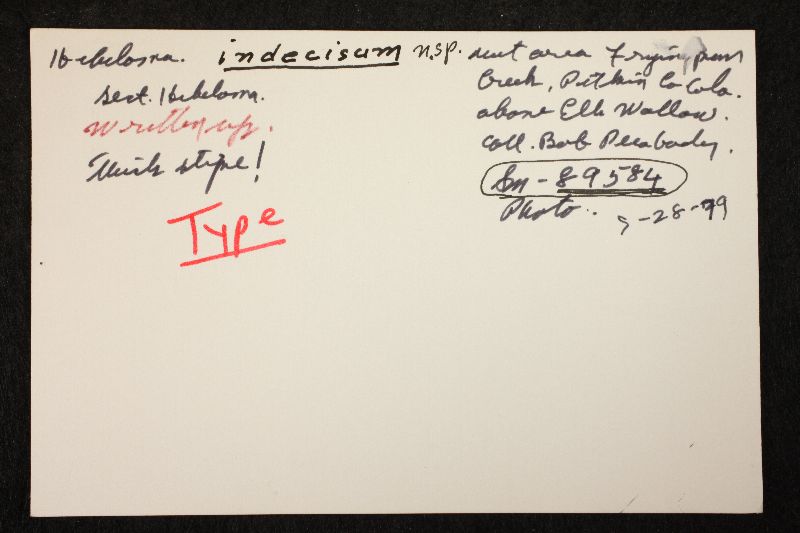 Hebeloma. indecisum n.sp.
sect. Hebeloma.
Written up.
Thick stipe!
Type
area Fryingpan
Creek, Pitkin Co Colo.
above Elk Wallow.
coll. Bob Peabody.
Sm - 89584
Photo..
-28-79